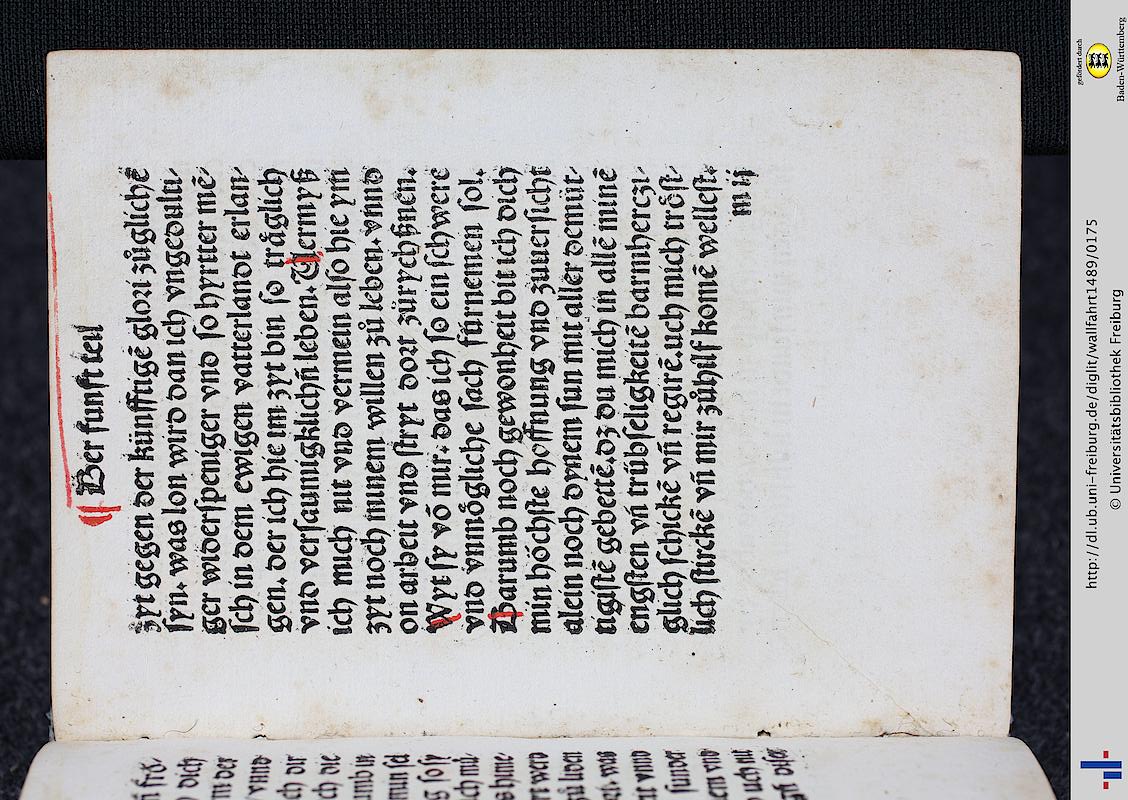 Der funfft teil
zyt gegen der künfftigē glori zůglichē
syn. was lon wird dan ich vngedulti⸗
ger widerspeniger vnd so hyrtter mē⸗
sch in dem ewigen vatterlandt erlan⸗
gen. der ich hie im zyt bin so träglich
vnd versaumigklichñ leben. Uermyß
ich mich nit vnd vermein also hie ym
zyt noch minem willen zů leben. vnnd
on arbeit vnd stryt dort zürychßnen.
Wyt sy vō mir. das ich so ein schwere
vnd vnmögliche sach fürnemen sol.
Darumb noch gewonheit bit ich dich
min höchste hoffnung vnd zuuersicht
alein noch dynem sun mit aller demüt⸗
tigistē gebette. dz du mich in allē minē
engsten vñ trübseligkeitē barmherczi⸗
glich schickē vñ regirē. uch mich tröst⸗
lich stirckē vñ mir zůhilf komē wellest.
m iij
dich
n der
vnnd
ch dir
ch die
gefördert durch
Baden-Württemberg
http://dl.ub.uni-freiburg.de/diglit/wallfahrt1489/0175
© Universitätsbibliothek Freiburg